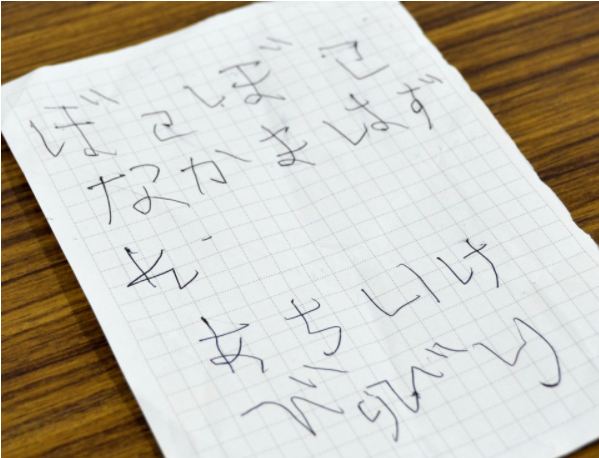 ぼこぼこ
なかまはず
れ
あちいけ
びりびり